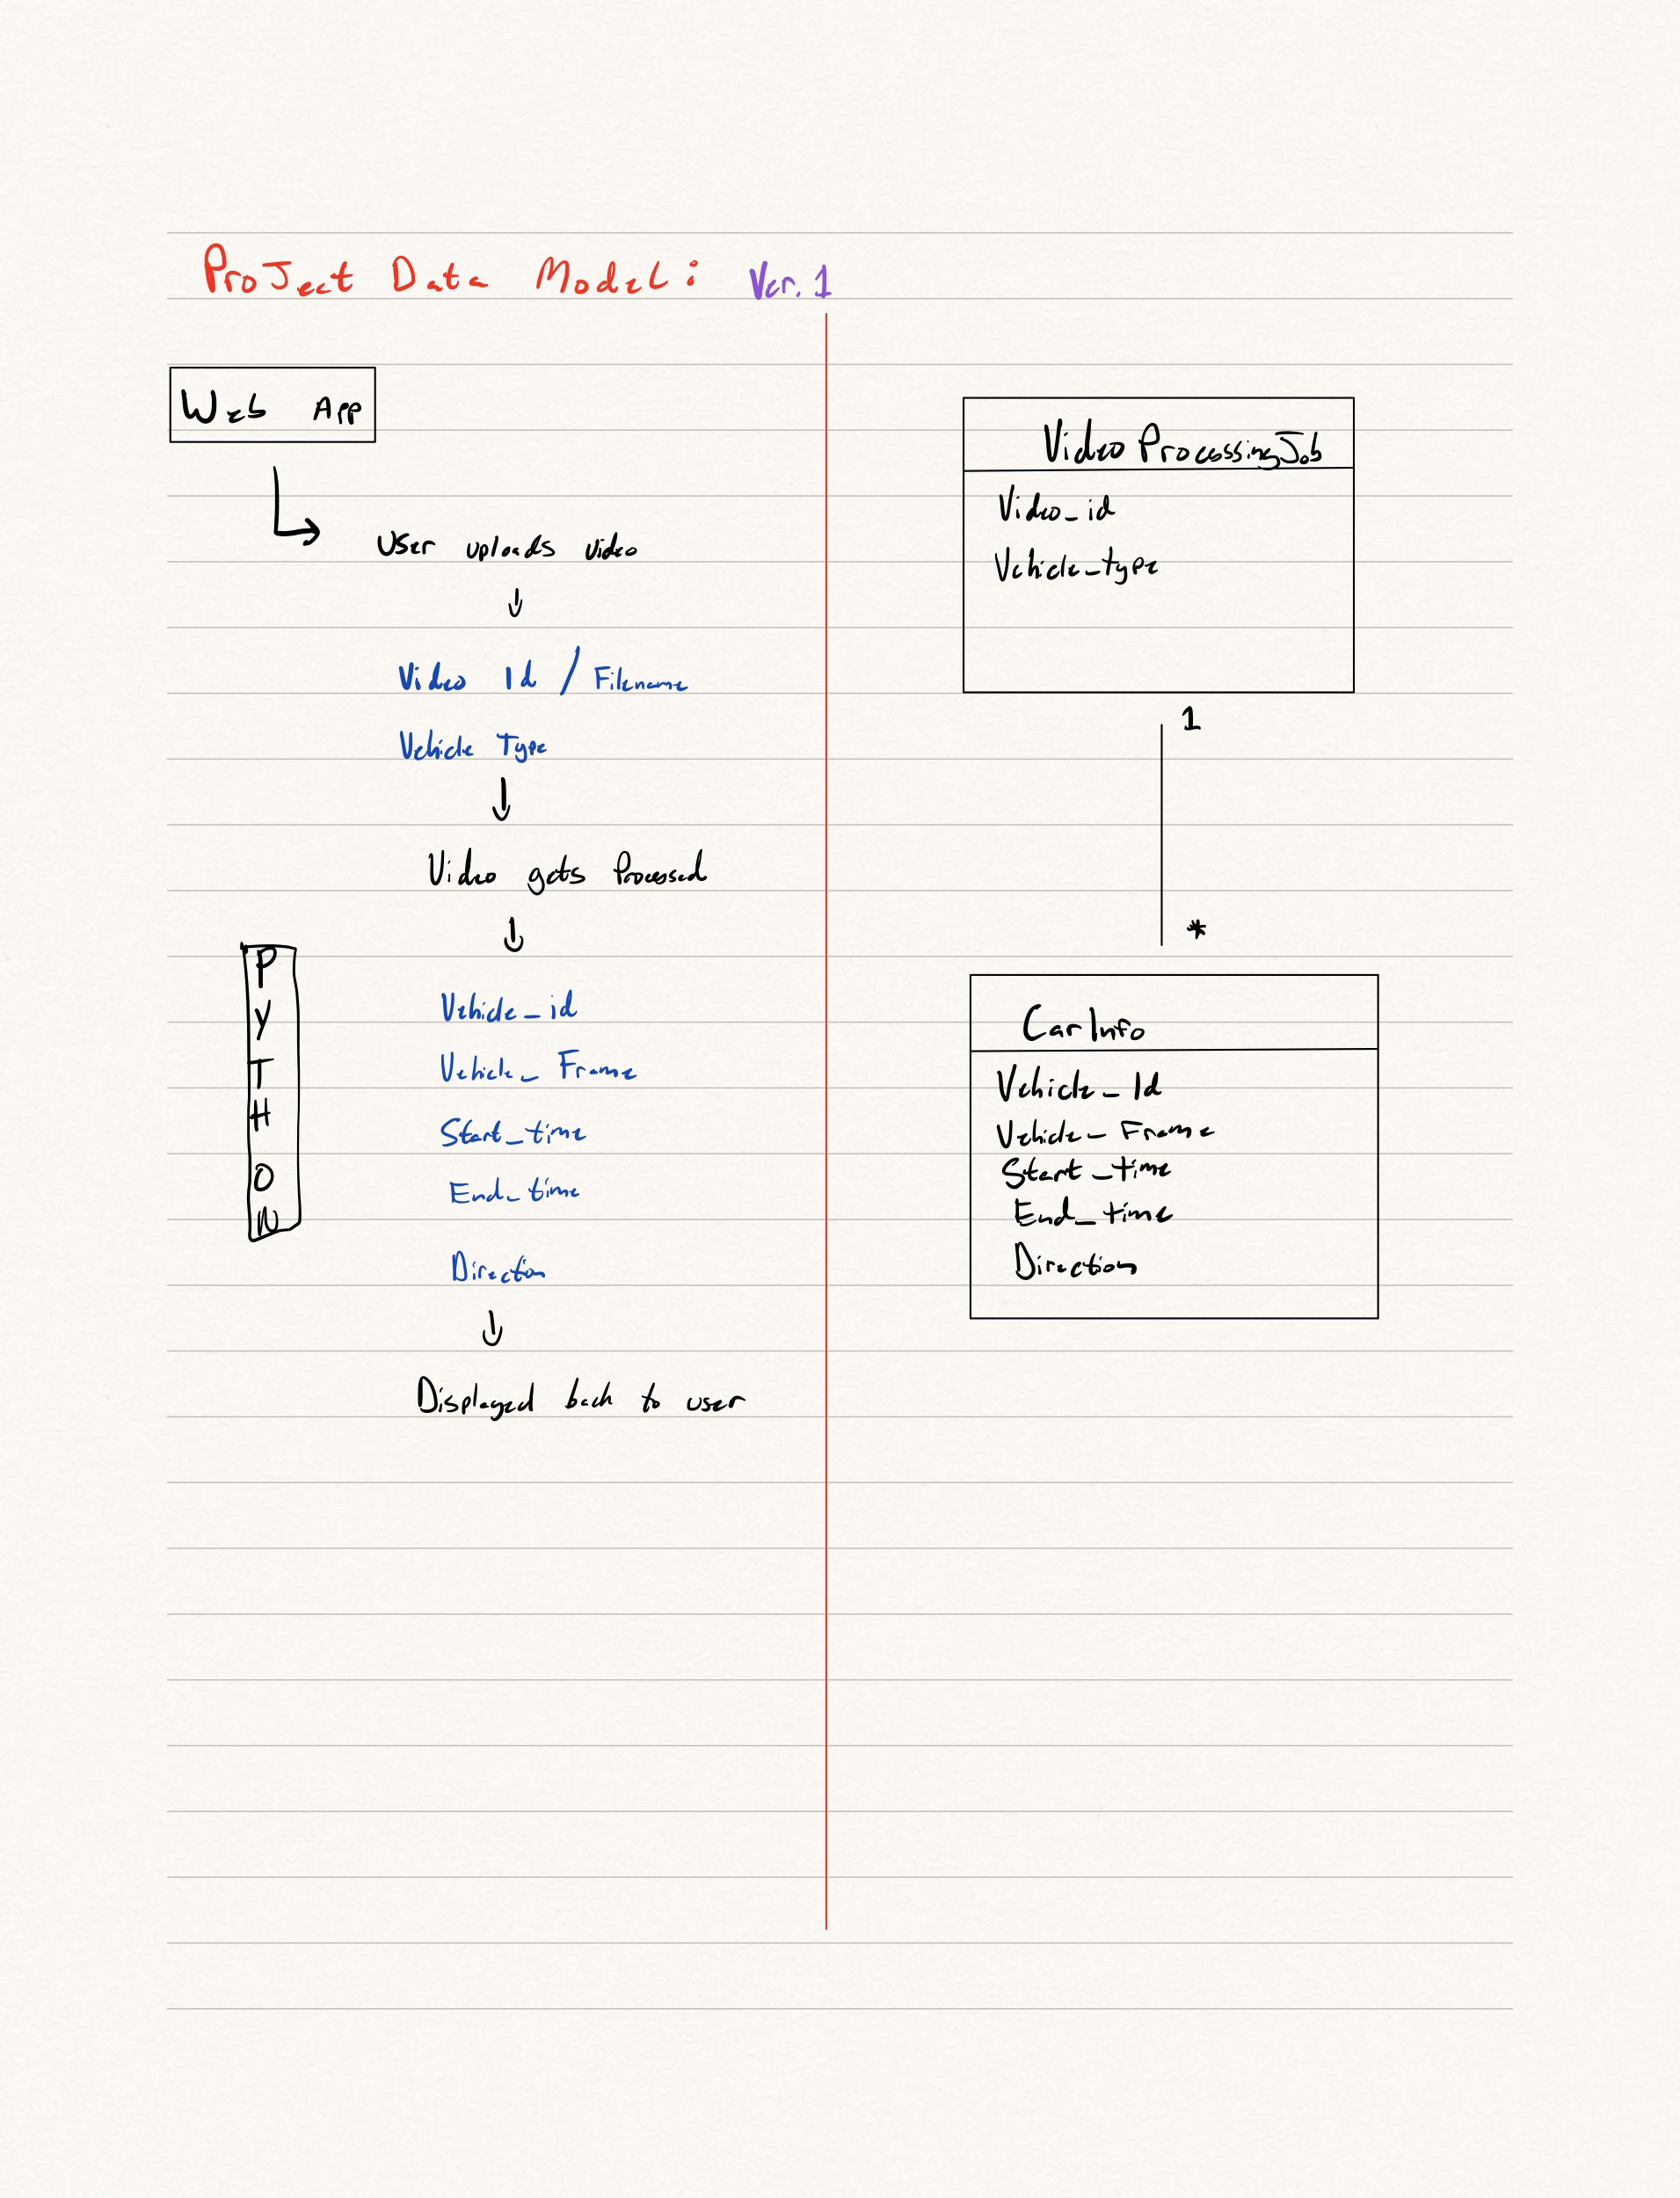 Project Data Model: Ver. 1
Web App
User uploads video
Video Id / Filename
Vehicle Type
Video gets Processed
PYTHON
Vehicle_id
Vehicle_Frame
Start_time
End_time
Direction
Displayed back to user
VideoProcessingJob
Video_id
Vehicle_type
1
*
CarInfo
Vehicle_Id
Vehicle_Frame
Start_time
End_time
Direction